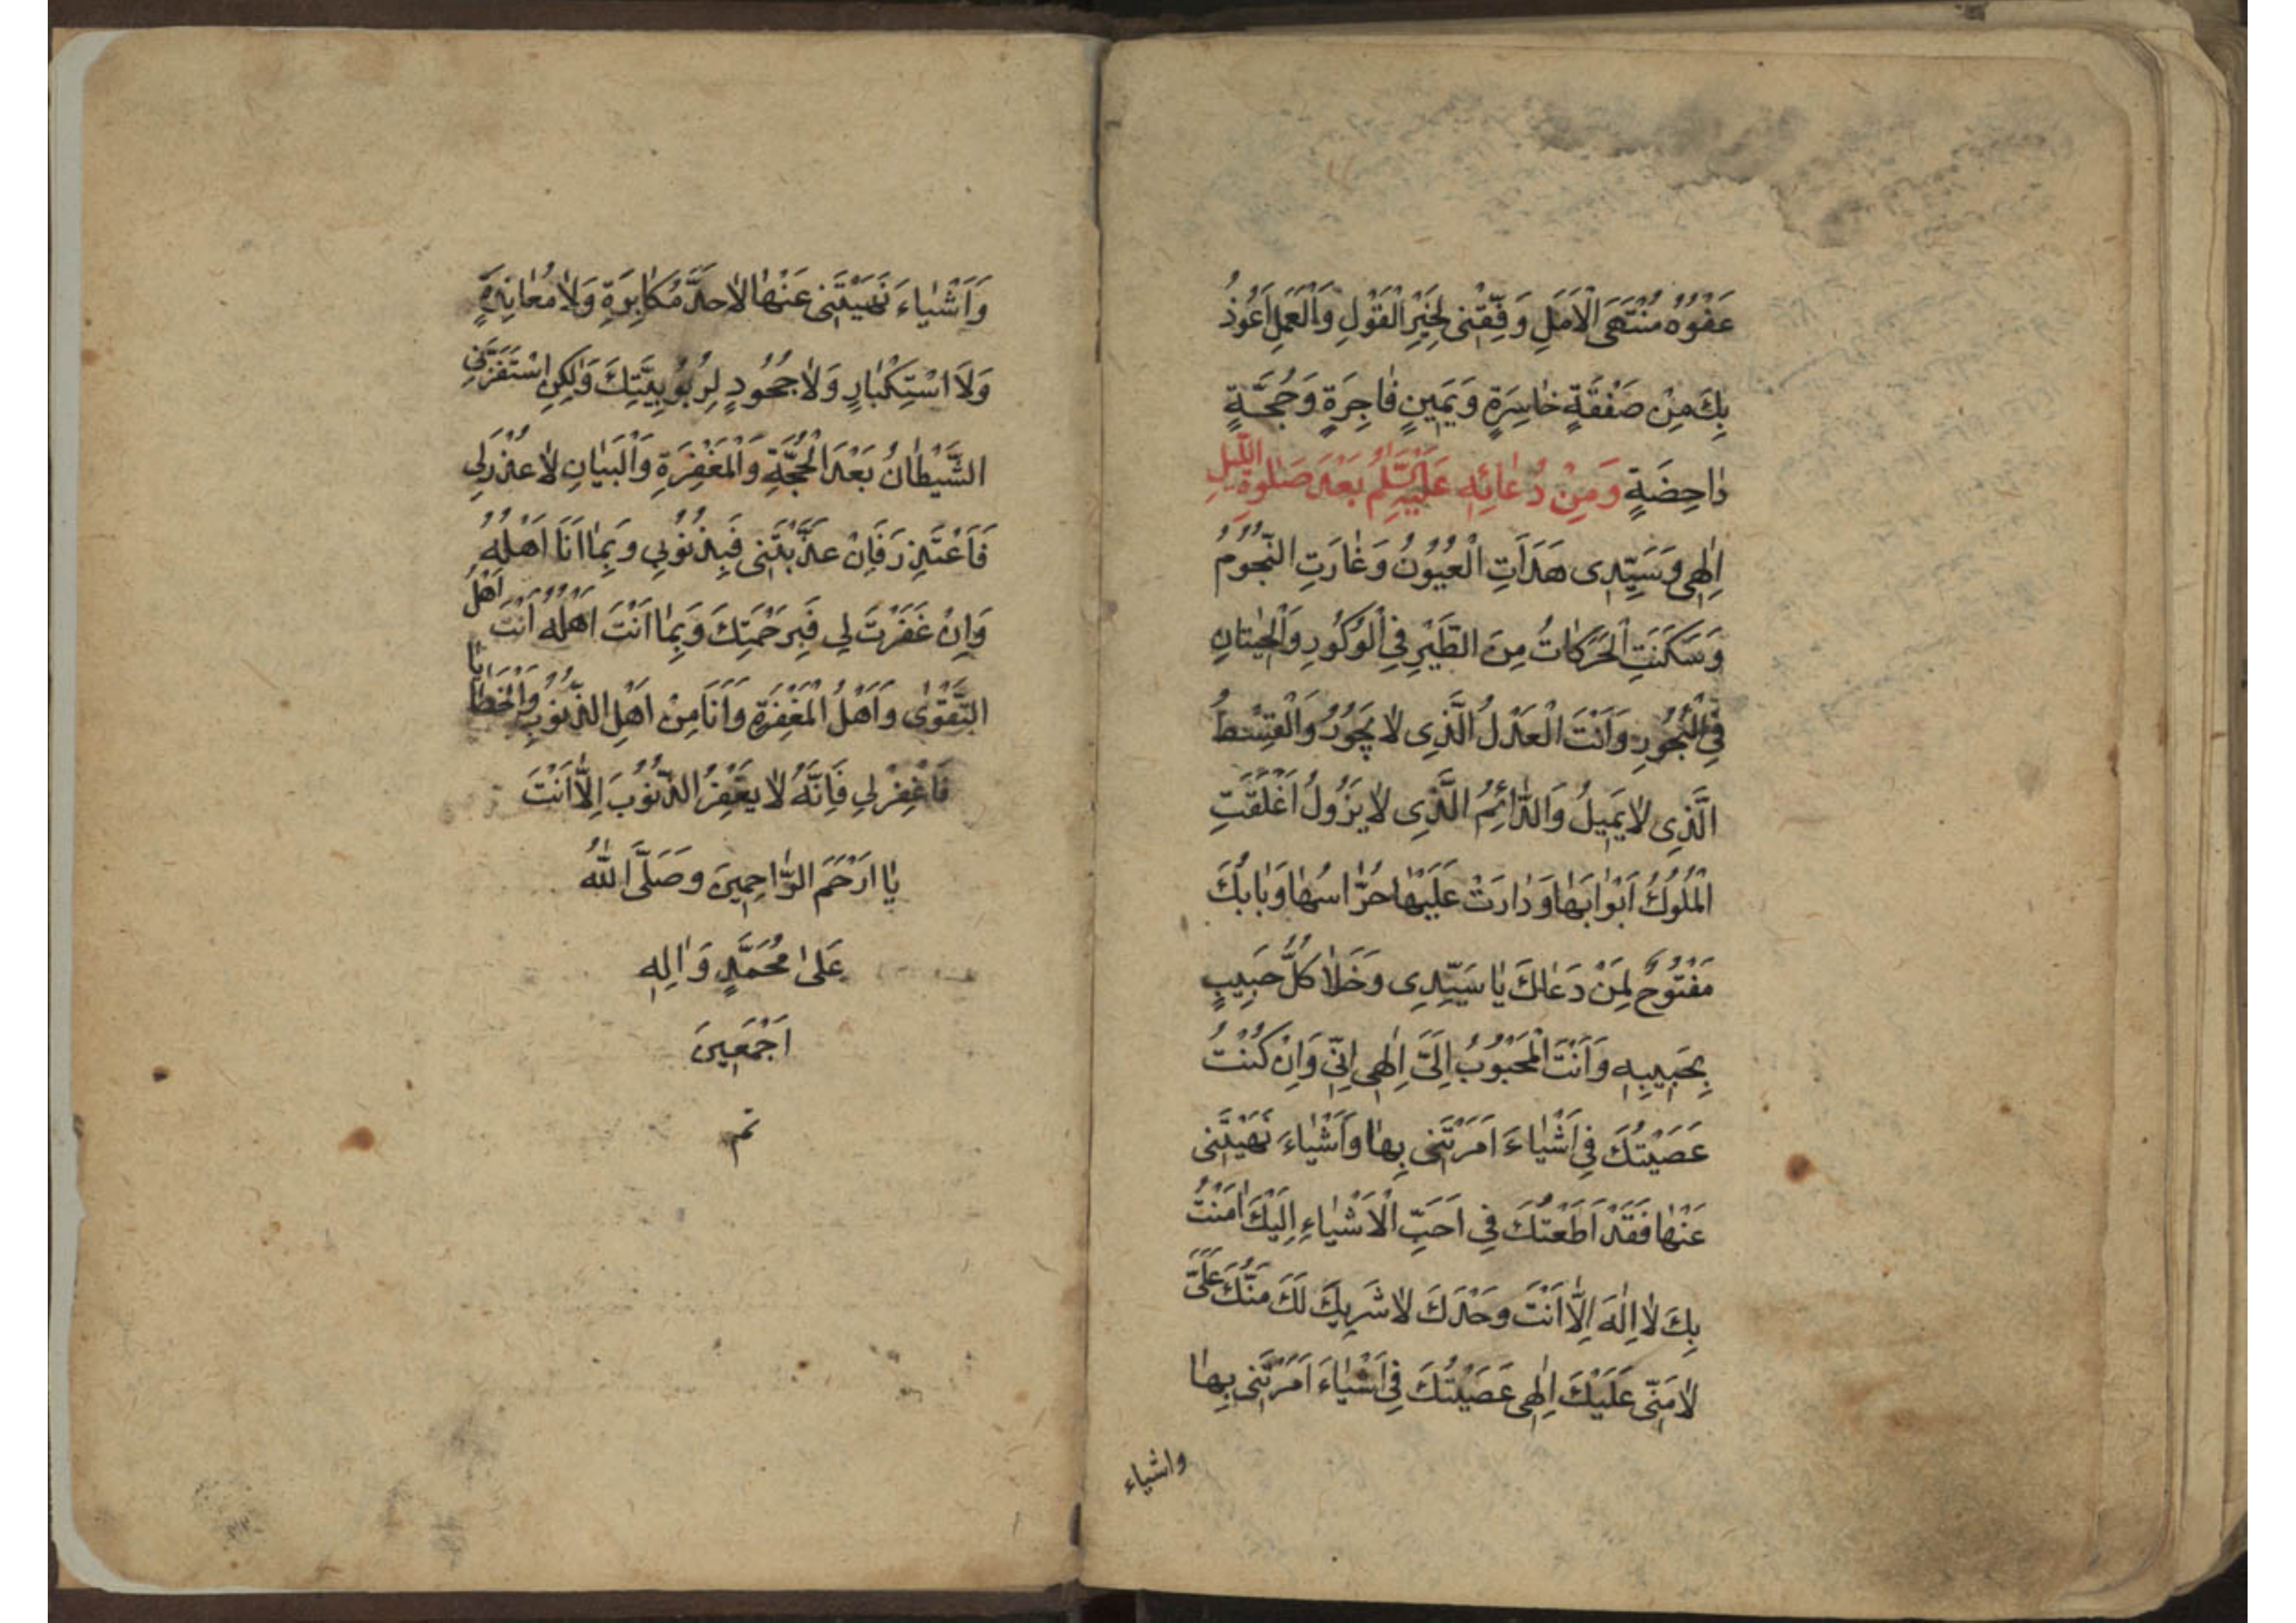 عَفْوُهُ مُنْتَهَى الْاَمَلِ وَفِّقْنى لِخَيْرِ الْقَوْلِ وَالْعَمَلِ اَعُوذُ
بِكَ مِنْ صَفْقَةٍ خاسِرَةٍ وَيَمينٍ فاجِرَةٍ وَحُجَّةٍ
داحِضَةٍ وَمِنْ دُعائِهِ عَلَيْهِ السَّلَم بَعْدَ صَلوةِ اللَّيْلِ
اِلٰهى وَسَيِّدى هَدَاَتِ الْعُيُونُ وَغارَتِ النُّجُومُ
وَسَكَنَتِ الْحَرَكاتُ مِنَ الطَّيْرِ فِى الْوُكُورِ وَالْحيتانِ
فِى الْبُحُورِ وَاَنْتَ الْعَدْلُ الَّذى لا يَجُورُ وَالْقِسْطُ
الَّذى لا يَميلُ وَالدّائِمُ الَّذى لا يَزُولُ اَغْلَقَتِ
الْمُلُوكُ اَبْوابَها وَدارَتْ عَلَيْها حُرّاسُها وَبابُكَ
مَفْتُوحٌ لِمَنْ دَعاكَ يا سَيِّدى وَخَلا كُلُّ حَبيبٍ
بِحَبيبِهِ وَاَنْتَ الْمَحْبُوبُ اِلَىَّ اِلٰهى اِنّى وَاِنْ كُنْتُ
عَصَيْتُكَ فى اَشْياءَ اَمَرْتَنى بِها وَاَشْياءَ نَهَيْتَنى
عَنْها فَقَدْ اَطَعْتُكَ فى اَحَبِّ الْاَشْياءِ اِلَيْكَ اٰمَنْتُ
بِكَ لا اِلٰهَ اِلّا اَنْتَ وَحْدَكَ لا شَريكَ لَكَ مَنُّكَ عَلَىَّ
لا مَنّى عَلَيْكَ اِلٰهى عَصَيْتُكَ فى اَشْياءَ اَمَرْتَنى بِها
واشياء
وَاَشْياءَ نَهَيْتَنى عَنْها لا حَدَّ مُكابِرَةٍ وَلا مُعانِدَةٍ
وَلَا اسْتِكْبارٍ وَلا جُحُودٍ لِرُبُوبِيَّتِكَ وَلكِنِ اسْتَفَزَّنِى
الشَّيْطانُ بَعْدَ الْحُجَّةِ وَالْمَغْفِرَةِ وَالْبَيانِ لا عُذْرَ لى
فَاَعْتَذِرَ فَاِنْ عَذَّبْتَنى فَبِذُنُوبى وَبِما اَنَا اَهْلُهُ
وَاِنْ غَفَرْتَ لى فَبِرَحْمَتِكَ وَبِما اَنْتَ اَهْلُهُ اَنْتَ اَهْلُ
التَّقْوٰى وَاَهْلُ الْمَغْفِرَةِ وَاَنَا مِنْ اَهْلِ الذُّنُوبِ وَالْخَطايا
فَاغْفِرْ لى فَاِنَّهُ لا يَغْفِرُ الذُّنُوبَ اِلّا اَنْتَ
يا اَرْحَمَ الرّاحِمينَ وَصَلَّى اللّٰهُ
عَلىٰ مُحَمَّدٍ وَاٰلِهِ
اَجْمَعينَ
تم